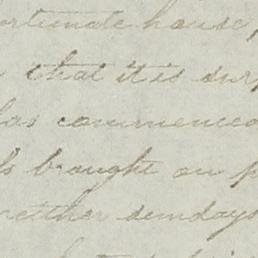 ortunate house,
that it is sur
has commenced
ls brought on p
neither sundays